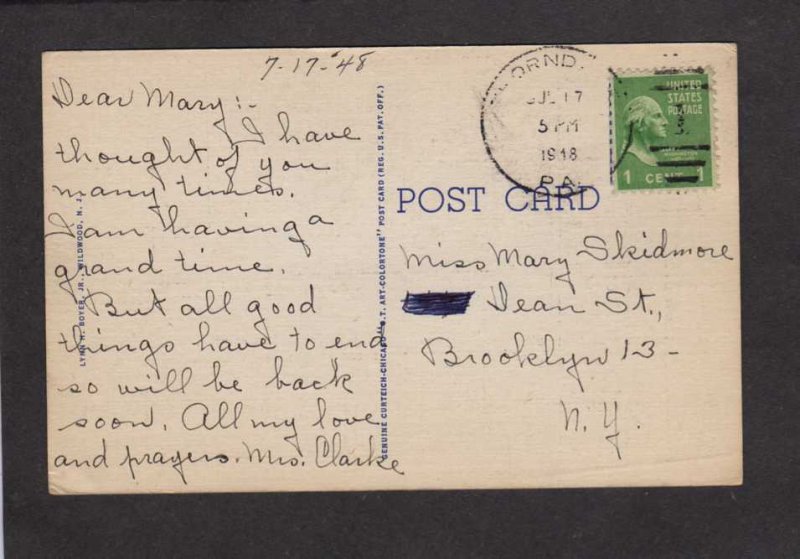 7-17-48
Dear Mary:-
I have
thought of you
many times.
I am having a
grand time.
But all good
things have to end
so will be back
soon. All my love
and prayers. Mrs. Clarke
LYNN H. BOYER, JR., WILDWOOD, N. J.
GENUINE CURTEICH-CHICAGO "C.T. ART-COLORTONE" POST CARD (REG. U.S. PAT. OFF.)
JUL 17
5 PM
1948
PA.
UNITED
STATES
POSTAGE
1 CENT 1
POST CARD
Miss Mary Skidmore
Dean St.,
Brooklyn 13-
N.Y.